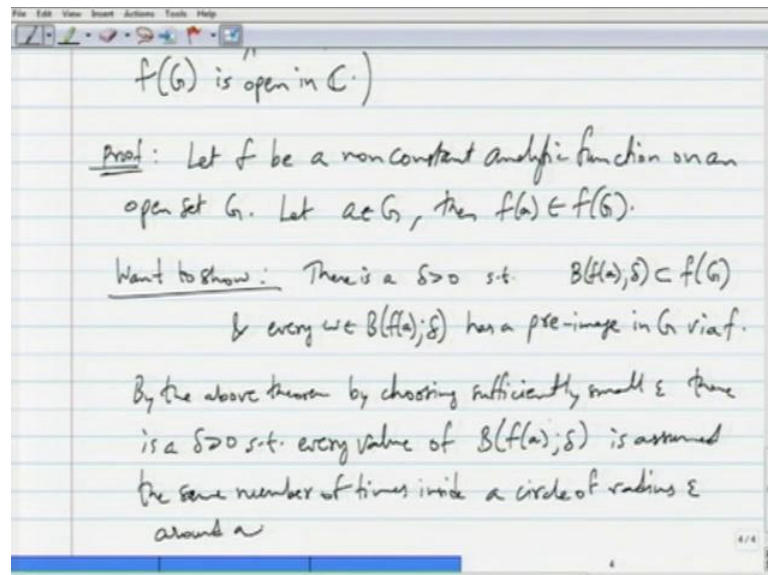 File Edit View Insert Actions Tools Help
f(G) is open in ℂ.)
Proof: Let f be a nonconstant analytic function on an
open set G. Let a∈G, then f(a) ∈ f(G).
Want to show: There is a δ>0 s.t. B(f(a);δ) ⊂ f(G)
& every w∈ B(f(a);δ) has a pre-image in G via f.
By the above theorem by choosing sufficiently small ε there
is a δ>0 s.t. every value of B(f(a);δ) is assumed
the same number of times inside a circle of radius ε
around a
4/4
4